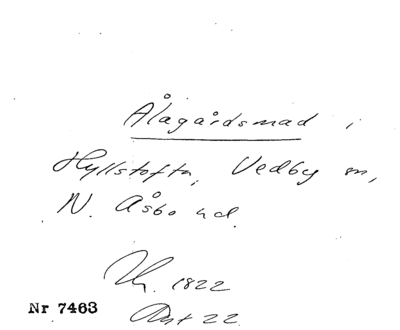 Ålagårdsmad i
Hyllstofta, Vedby sn,
N. Åsbo hd.
1822
Nr 7463
22